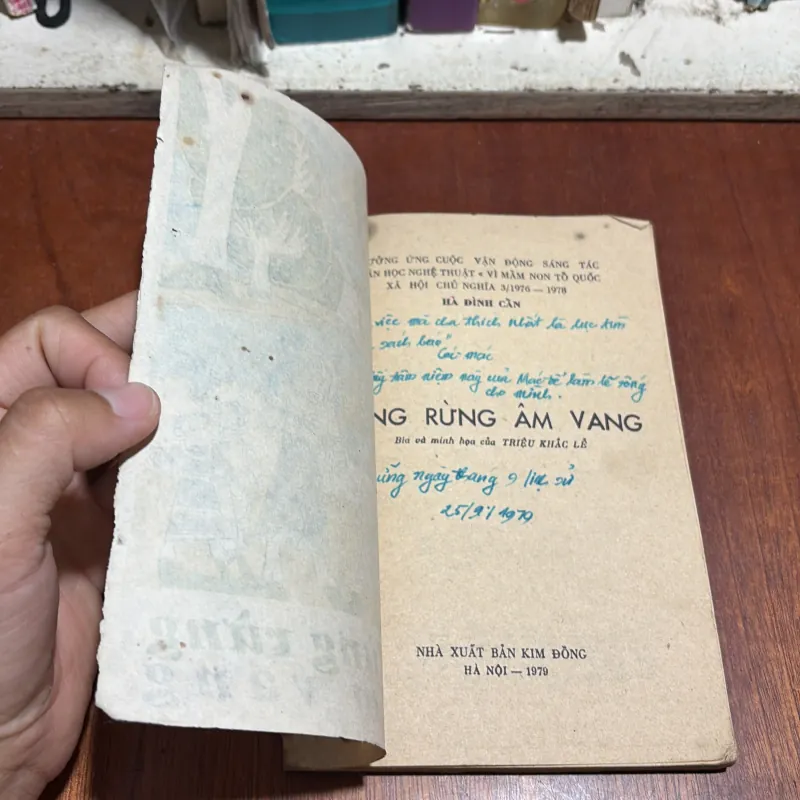 ƯỞNG ỨNG CUỘC VẬN ĐỘNG SÁNG TÁC
ĂN HỌC NGHỆ THUẬT « VÌ MẦM NON TỔ QUỐC
XÃ HỘI CHỦ NGHĨA 3/1976 — 1978
HÀ ĐÌNH CẨN
việc mà cha thích nhất là lục tìm
sách báo"
Các mác
này của Mác để làm lẽ sống
cho mình.
NG RỪNG ÂM VANG
Bìa và minh họa của TRIỆU KHẮC LỄ
ngày tháng 9 lịch sử
25/9/1979
NHÀ XUẤT BẢN KIM ĐỒNG
HÀ NỘI — 1979
ng rừng
vang